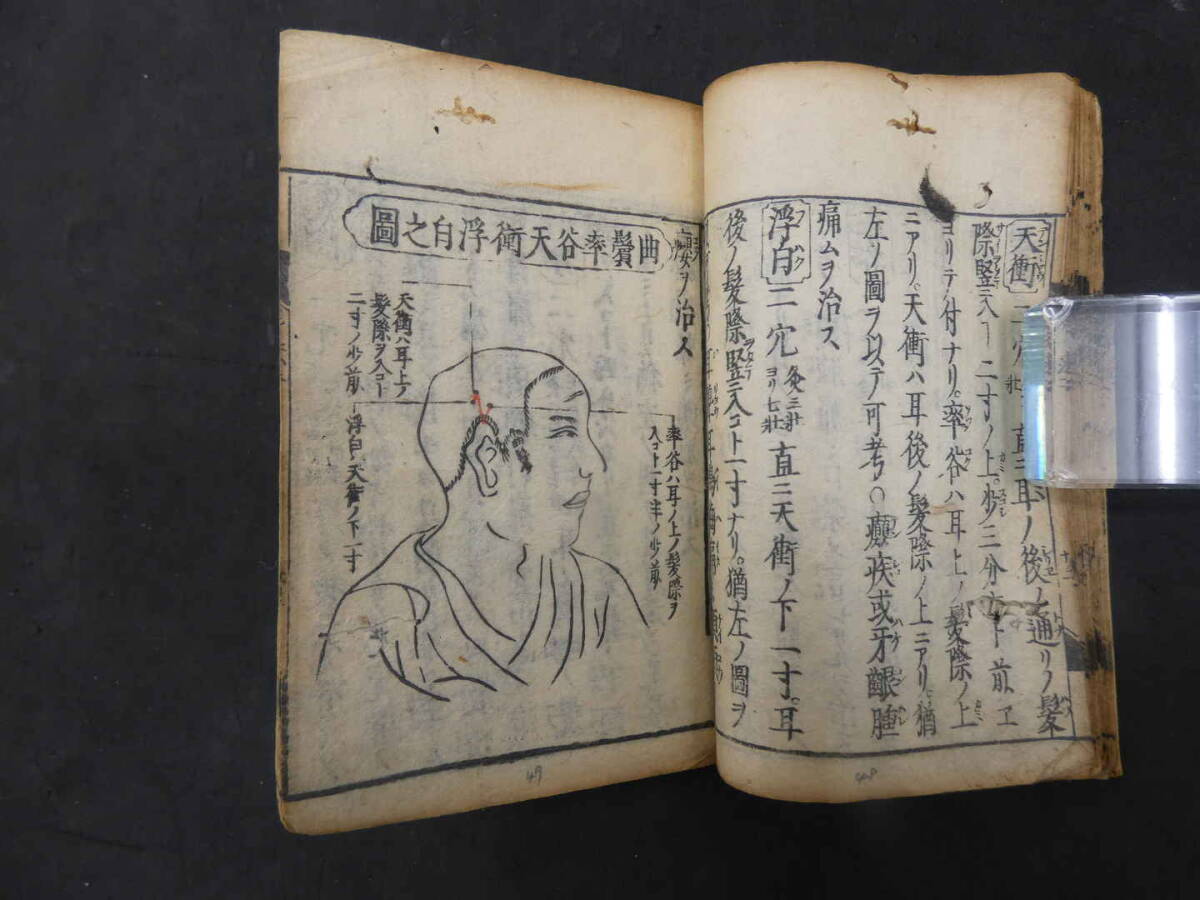 天衝
二穴
直ニ耳ノ後ノ通リノ髪
際竪ニ入コト二寸ノ上少三分ホド前エ
ヨリテ付ナリ。率谷ハ耳上ノ髪際ノ上
ニアリ。天衝ハ耳後ノ髪際ノ上ニアリ。猶
左ノ圖ヲ以テ可考○癲疾或牙齦腫
痛ムヲ治ス
浮白
二穴
灸三壮
ヨリ七壮
直ニ天衝ノ下一寸。耳
後ノ髪際竪ニ入コト一寸ナリ。猶左ノ圖ヲ
ヲ治ス
曲鬢率谷天衝浮白之圖
率谷ハ耳ノ上ノ髪際ヲ
入コト一寸半ノ少前
天衝ハ耳上ノ
髪際ヲ入コト
二寸ノ少前
浮白ハ天衝ノ下一寸
49